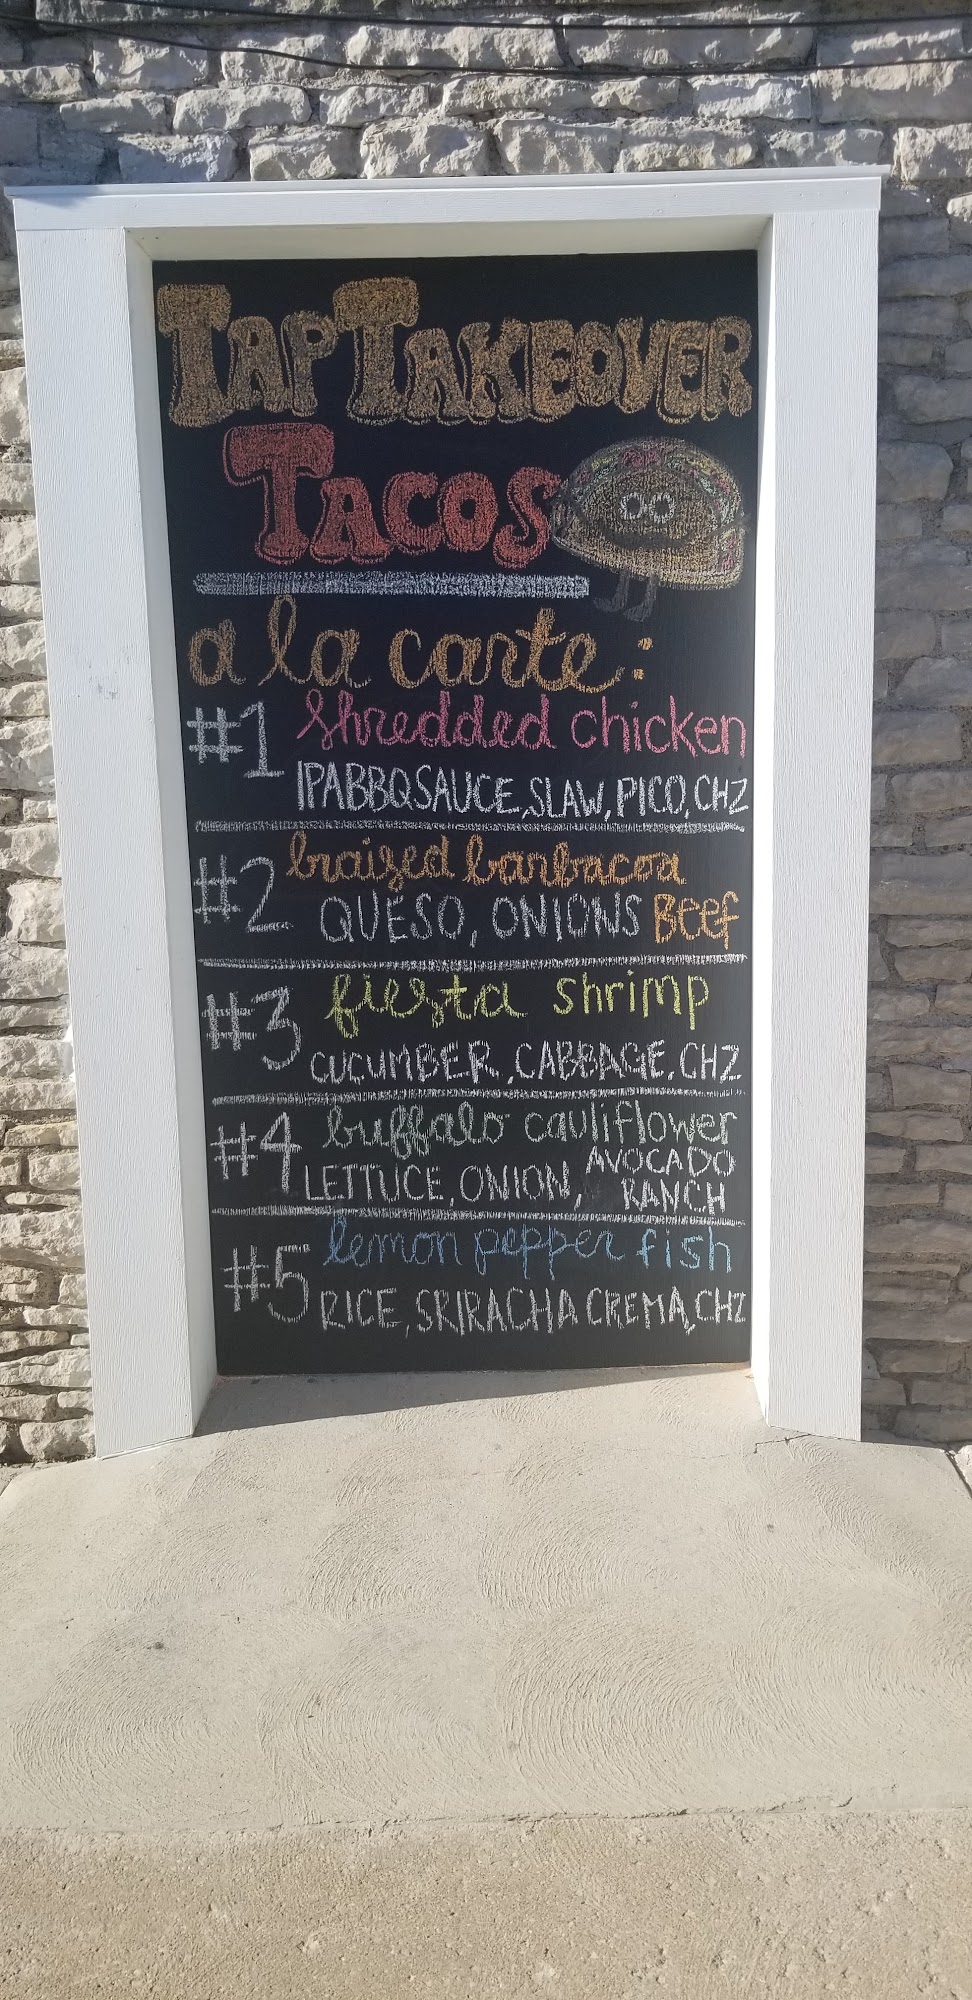 TAP TAKEOVER
TACOS
a la carte:
#1 shredded chicken
IPA BBQ SAUCE, SLAW, PICO, CHZ
#2 braised barbacoa
QUESO, ONIONS Beef
#3 fiesta shrimp
CUCUMBER, CABBAGE, CHZ
#4 buffalo cauliflower
LETTUCE, ONION, AVOCADO
RANCH
#5 lemon pepper fish
RICE, SRIRACHA CREMA, CHZ